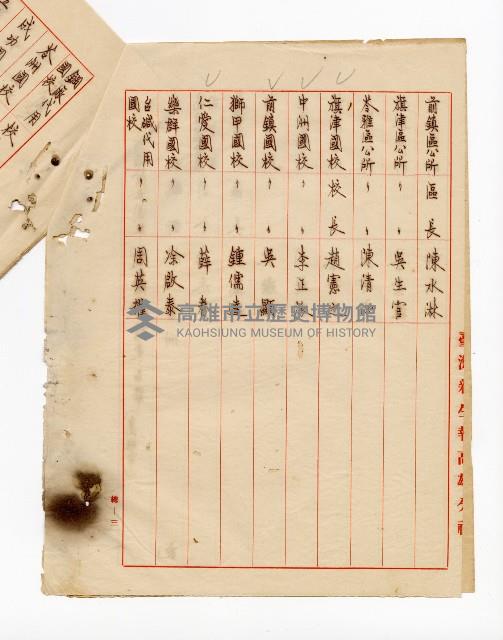 前鎮區公所 區長 陳水淋
旗津區公所 〃 〃 吳生官
苓雅區公所 〃 〃 陳清
旗津國校 校長 趙憲
中洲國校 〃 〃 李正
前鎮國校 〃 〃 吳顯
獅甲國校 〃 〃 鍾儒
仁愛國校 〃 〃 薛
樂群國校 〃 〃 涂啟泰
台鹼代用國校 〃 〃 周英
鋼廠代用國校
苓洲國校
成功國校
臺灣新生報高雄分社
總—三
高雄市立歷史博物館
KAOHSIUNG MUSEUM OF HISTORY